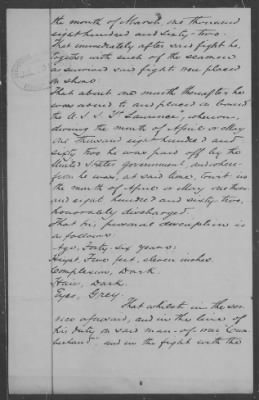 the month of March, one thousand
eight hundred and sixty-two.
That immediately after said fight he,
together with such of the seamen
as survived said fight were placed
on shore.
That about one month thereafter he
was ordered to and placed on board
the U.S.S. "St Lawrence", whereon,
during the month of April or May
one thousand eight hundred and
sixty two he was paid off by the
United States government, and where-
from he was, at said time, to wit: in
the month of April or May one thous-
and eight hundred and sixty-two,
honorably discharged.
That his personal description is
as follows:
Age, Forty six years.
Height Five feet, eleven inches.
Complexion, Dark.
Hair, Dark.
Eyes, Grey.
That whilst in the ser-
vice aforesaid, and in the line of
his duty on said man-of-war "Cum-
berland" and in the fight with the